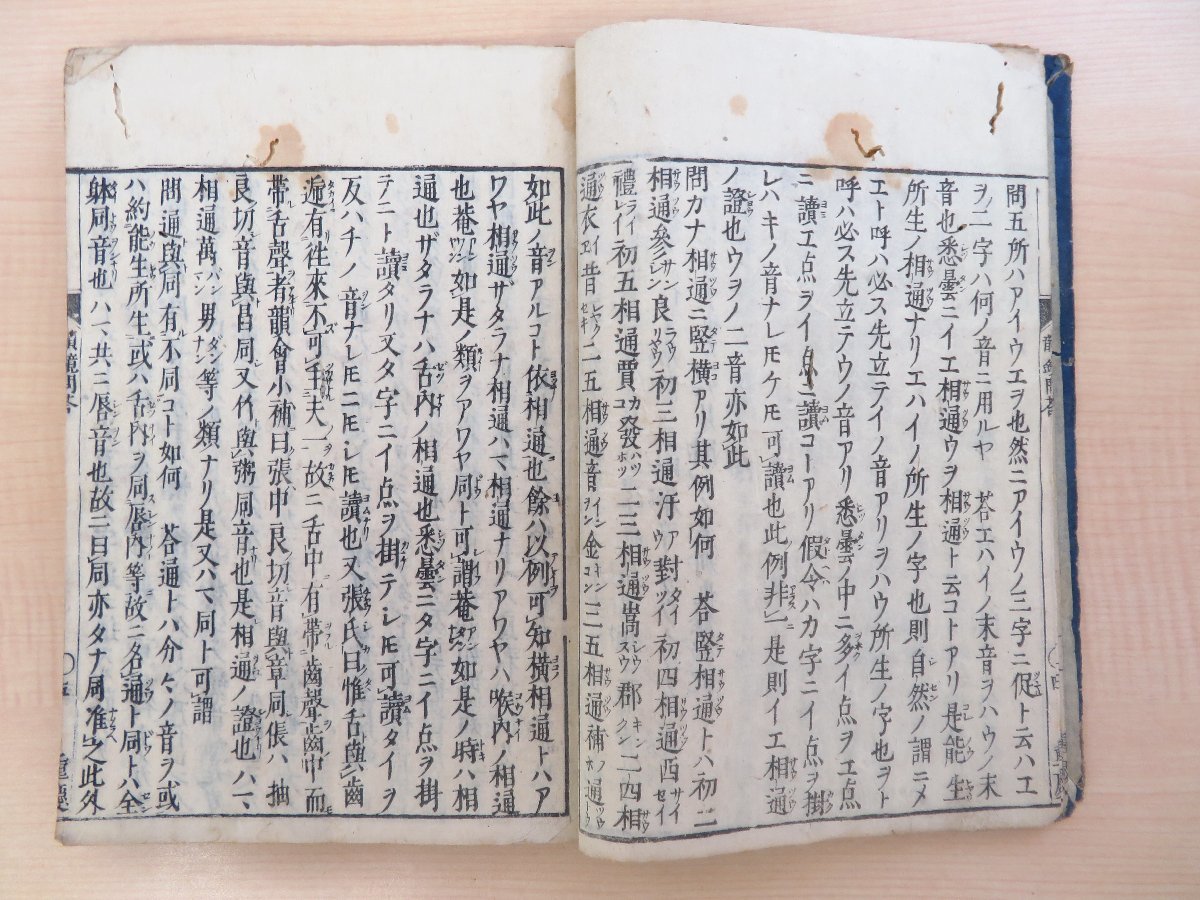 問五所ハアイウエヲ也然ニアイウノ三字ニ促ト云ハエ
ヲノ二字ハ何ノ音ニ用ルヤ 荅エハイノ末音ヲハウノ末
音也悉曇ニイエ相通ウヲ相通ト云コトアリ是能生
所生ノ相通ナリエハイノ所生ノ字也則自然ノ謂ニメ
エト呼ハ必ス先立テイノ音アリヲハウ所生ノ字也ヲト
呼ハ必ス先立テウノ音アリ悉曇ノ中ニ多イ点ヲエ点
ニ讀エ点ヲイ点ニ讀コトアリ假令ハカ字ニイ点ヲ掛
レハキノ音ナレ𪜈ケ𪜈可讀也此例非一是則イエ相通
ノ證也ウヲノ二音亦如此
問カナ相通ニ竪横アリ其例如何 荅竪相通トハ初二
相通參良初三相通汗對初四相通西
禮初五相通賈發二三相通嵩郡二四相
通衣昔二五相通音金三五相通補通
如此ノ音アルコト依相通也餘ハ以例可知横相通トハア
ワヤ相通ザタラナ相通ハマ相通ナリアワヤハ喉内ノ相通
也菴如是ノ類ヲアワヤ同ト可謂菴如是ノ時ハ相
通也ザタラナハ舌内ノ相通也悉曇ニタ字ニイ点ヲ掛
テニト讀タリ又タ字ニイ点ヲ掛テレ𪜈可讀タイヲ
反ハチノ音ナレ𪜈ニ𪜈レ𪜈讀也又張氏曰惟舌與齒
遞有徃來不可主夫一故ニ舌中有帶齒聲齒中而
帶舌聲者韻會小補曰張中良切音與章同倀ハ抽
良切音與昌同又竹與粥同音也是相通ノ證也ハマ
相通萬男等ノ類ナリ是又ハマ同ト可謂
問通與同有不同コト如何 荅通トハ分々ノ音ヲ或
ハ約能生所生或ハ舌内ヲ同唇内等故ニ名通ト同トハ全
躰同音也ハマ共ニ唇音也故ニ曰同亦タナ同准之此外